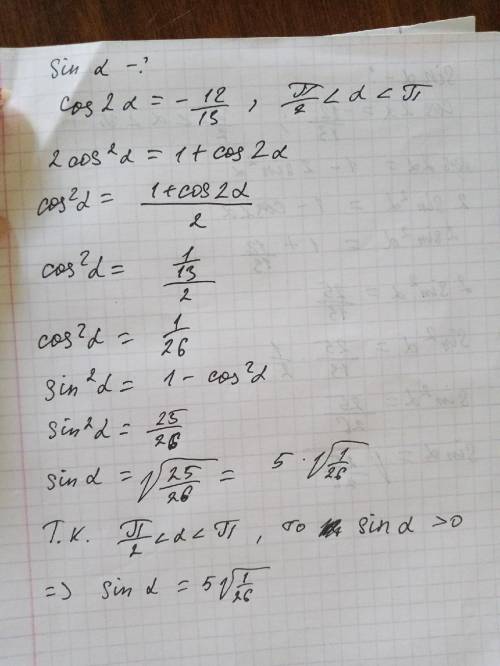 sin α - ?
cos 2α = - 12/13 , π/2 < α < π
2cos²α = 1 + cos 2α
cos²α = (1 + cos 2α)/2
cos²α = (1/13)/2
cos²α = 1/26
sin²α = 1 - cos²α
sin²α = 25/26
sin α = √(25/26) = 5 · √(1/26)
Т.к. π/2 < α < π , то sin α > 0
=> sin α = 5√(1/26)